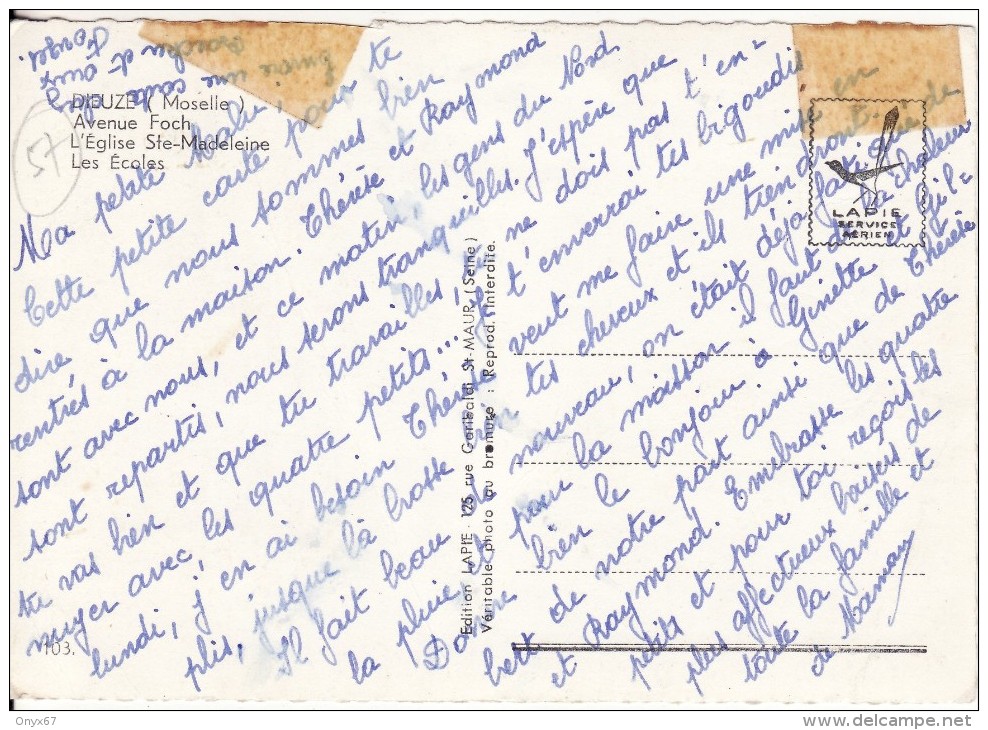 DIEUZE ( Moselle )
Avenue Foch
L'Église Ste-Madeleine
Les Écoles
57
Envoie une
carte aux
Ma petite
Cette petite carte pour te
dire que nous sommes bien
rentrés à la maison. Thérèse et Raymond
sont avec nous, et ce matin, les gens du Nord
sont repartis, nous serons tranquilles. J'espère que
tu vas bien et que tu travailles, ne dois pas t'en=
nuyer avec les quatre petits... Je t'enverrai tes bigoudis
lundi, j'en ai besoin Thérèse veut me faire une mise en
plis, jusque là brosse bien tes cheveux et ils tiendront
Il fait beau de nouveau, on était déjà fatigué de
la pluie et pour la moisson il faut de la chaleur
Donne bien le bonjour à Ginette et Gil=
bert de notre part ainsi que de Thérèse
et Raymond. Embrasse les quatre
petits et pour toi reçois les
plus affectueux baisers de
toute la famille et
de Maman
Edition LAPIE - 125 rue Garibaldi St-MAUR (Seine)
Véritable photo au bromure : Reprod. Interdite.
LAPIE
SERVICE
AÉRIEN
103.
Onyx67
delcampe.net